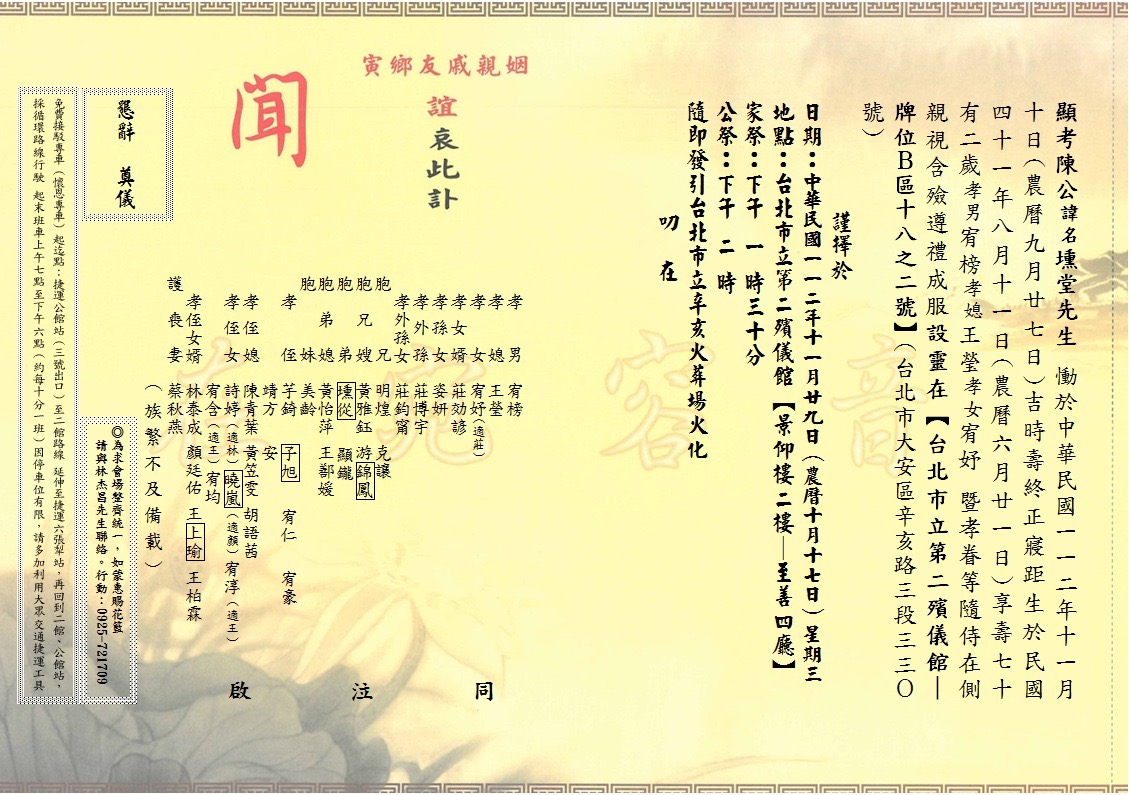 顯考陳公諱名壎堂先生 慟於中華民國一一二年十一月
十日(農曆九月廿七日)吉時壽終正寢距生於民國
四十一年八月十一日(農曆六月廿一日)享壽七十
有二歲孝男宥榜孝媳王瑩孝女宥妤 暨孝眷等隨侍在側
親視含殮遵禮成服設靈在【台北市立第二殯儀館—
牌位B區十八之二號】(台北市大安區辛亥路三段三三〇
號)
謹擇於
日期:中華民國一一二年十一月廿九日(農曆十月十七日)星期三
地點:台北市立第二殯儀館【景仰樓二樓—至善四廳】
家祭:下午 一 時三十分
公祭:下午 二 時
隨即發引台北市立辛亥火葬場火化
叨 在
姻親戚友鄉寅
誼哀此訃
聞
孝男 宥榜
孝媳 王瑩
孝女 宥妤(適莊)
孝女婿 莊効諺
孝孫女 姿妍
孝外孫 莊博宇
孝外孫女 莊鈞甯
胞兄 明煌 克讓
胞兄嫂 黃雅鈺 游錦鳳
胞弟 壎從 顯鑨
胞弟媳 黃怡萍 王鄯媛
胞妹 美齡
靖方 安
孝侄 芋錡 子旭 宥仁 宥豪
孝侄媳 陳青葉 黃笠雯 胡語茜
孝侄女 詩婷(適林) 曉嵐(適顏) 宥淳(適王)
宥含(適王) 宥均
孝侄女婿 林泰成 顏廷佑 王上瑜 王柏霖
護喪妻 蔡秋燕
(族繁不及備載)
同 注 啟
懇辭 奠儀
◎為求會場整齊統一,如蒙惠賜花籃
請與林杰昌先生聯絡。行動:0925-721709
免費接駁專車(懷恩專車)起迄點:捷運公館站(三號出口)至二館路線 延伸至捷運六張犁站,再回到二館、公館站,
採循環路線行駛 起末班車上午七點至下午六點(約每十分一班)因停車位有限,請多加利用大眾交通捷運工具
音容宛在